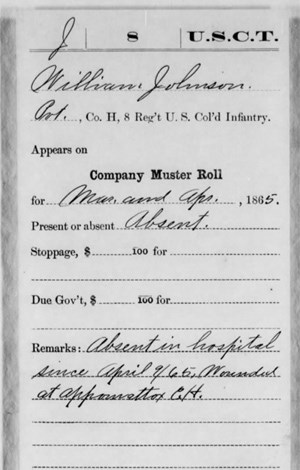 J 8 U.S.C.T.
William Johnson.
Pvt., Co. H, 8 Reg't U. S. Col'd Infantry.
Appears on
Company Muster Roll
for Mar. and Apr., 1865.
Present or absent Absent.
Stoppage, $ 100 for
Due Gov't, $ 100 for
Remarks: Absent in hospital
since April 9/65, Wounded
at Appomattox C.H.